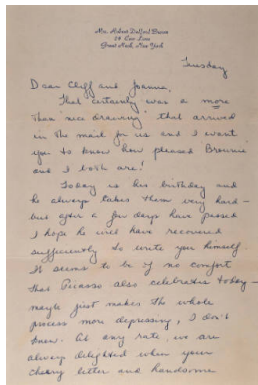 Mrs. Robert Delford Brown
24 Cow Lane
Great Neck, New York
Tuesday
Dear Cliff and Joanne,
That certainly was a more
than "nice drawing" that arrived
in the mail for us and I want
you to know how pleased Brownie
and I both are!
Today is his birthday and
he always takes them very hard –
but after a few days have passed
I hope he will have recovered
sufficiently to write you himself.
It seems to be of no comfort
that Picasso also celebrates today –
maybe just makes the whole
process more depressing, I don't
know. At any rate, we are
always delighted when your
cheery letter and handsome